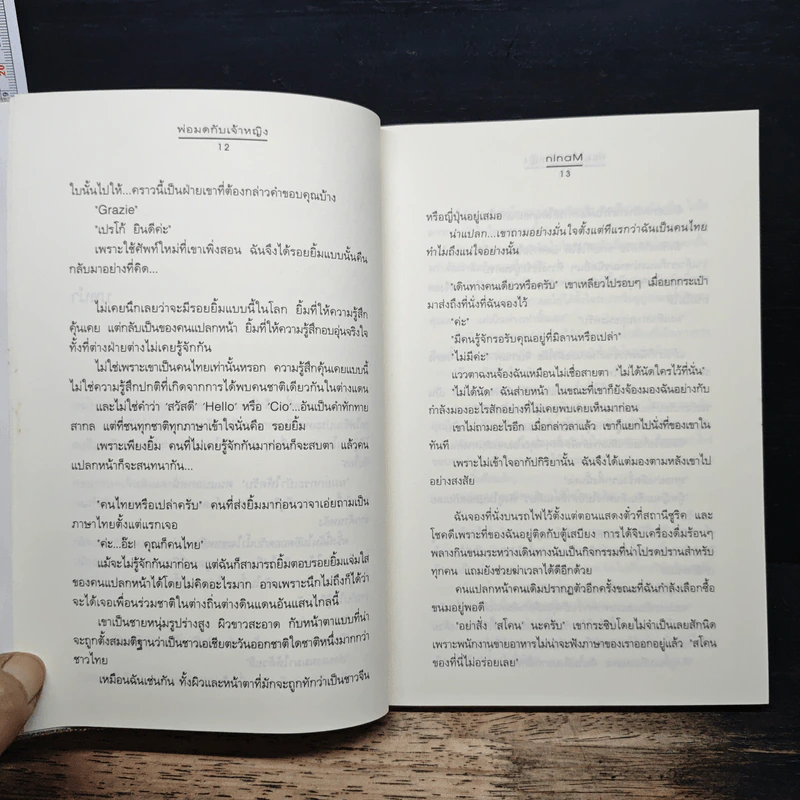 พ่อมดกับเจ้าหญิง
12
ใบนั้นไปให้...คราวนี้เป็นฝ่ายเขาที่ต้องกล่าวคำขอบคุณบ้าง
"Grazie"
"เปรโก้ ยินดีค่ะ"
เพราะใช้ศัพท์ใหม่ที่เขาเพิ่งสอน ฉันจึงได้รอยยิ้มแบบนั้นคืน
กลับมาอย่างที่คิด...
ไม่เคยนึกเลยว่าจะมีรอยยิ้มแบบนี้ในโลก ยิ้มที่ให้ความรู้สึก
คุ้นเคย แต่กลับเป็นของคนแปลกหน้า ยิ้มที่ให้ความรู้สึกอบอุ่นจริงใจ
ทั้งที่ต่างฝ่ายต่างไม่เคยรู้จักกัน
ไม่ใช่เพราะเขาเป็นคนไทยเท่านั้นหรอก ความรู้สึกคุ้นเคยแบบนี้
ไม่ใช่ความรู้สึกปกติที่เกิดจากการได้พบคนชาติเดียวกันในต่างแดน
และไม่ใช่คำว่า 'สวัสดี' 'Hello' หรือ 'Cio'...อันเป็นคำทักทาย
สากล แต่ที่ชนทุกชาติทุกภาษาเข้าใจนั่นคือ รอยยิ้ม
เพราะเพียงยิ้ม คนที่ไม่เคยรู้จักกันมาก่อนก็จะสบตา แล้วคน
แปลกหน้าก็จะสนทนากัน...
"คนไทยหรือเปล่าครับ" คนที่ส่งยิ้มมาก่อนวาจาเอ่ยถามเป็น
ภาษาไทยตั้งแต่แรกเจอ
"ค่ะ...อ๊ะ! คุณก็คนไทย"
แม้จะไม่รู้จักกันมาก่อน แต่ฉันก็สามารถยิ้มตอบรอยยิ้มแจ่มใส
ของคนแปลกหน้าได้โดยไม่คิดอะไรมาก อาจเพราะนึกไม่ถึงก็ได้ว่า
จะได้เจอเพื่อนร่วมชาติในต่างถิ่นต่างดินแดนอันแสนไกลนี้
เขาเป็นชายหนุ่มรูปร่างสูง ผิวขาวสะอาด กับหน้าตาแบบที่น่า
จะถูกตั้งสมมติฐานว่าเป็นชาวเอเชียตะวันออกชาติใดชาติหนึ่งมากกว่า
ชาวไทย
เหมือนฉันเช่นกัน ทั้งผิวและหน้าตาที่มักจะถูกทักว่าเป็นชาวจีน
ninaM
13
หรือญี่ปุ่นอยู่เสมอ
น่าแปลก...เขาถามอย่างมั่นใจตั้งแต่ทีแรกว่าฉันเป็นคนไทย
ทำไมถึงแน่ใจอย่างนั้น
"เดินทางคนเดียวหรือครับ" เขาเหลียวไปรอบๆ เมื่อยกกระเป๋า
มาส่งถึงที่นั่งที่ฉันจองไว้
"ค่ะ"
"มีคนรู้จักรอรับคุณอยู่ที่มิลานหรือเปล่า"
"ไม่มีค่ะ"
แววตาฉงนจ้องฉันเหมือนไม่เชื่อสายตา "ไม่ได้นัดใครไว้ที่นั่น"
"ไม่ได้นัด" ฉันส่ายหน้า ในขณะที่เขาก็ยังจ้องมองฉันอย่างกับ
กำลังมองอะไรสักอย่างที่ไม่เคยพบเคยเห็นมาก่อน
เขาไม่ถามอะไรอีก เมื่อกล่าวลาแล้ว เขาก็แยกไปนั่งที่ของเขาใน
ทันที
เพราะไม่เข้าใจอากัปกิริยานั้น ฉันจึงได้แต่มองตามหลังเขาไป
อย่างสงสัย
ฉันจองที่นั่งบนรถไฟไว้ตั้งแต่ตอนแสดงตั๋วที่สถานีซูริค และ
โชคดีเพราะที่ของฉันอยู่ติดกับตู้เสบียง การได้จิบเครื่องดื่มร้อนๆ
พลางกินขนมระหว่างเดินทางนับเป็นกิจกรรมที่น่าโปรดปรานสำหรับ
ทุกคน แถมยังช่วยฆ่าเวลาได้ดีอีกด้วย
คนแปลกหน้าคนเดิมปรากฏตัวอีกครั้งขณะที่ฉันกำลังเลือกซื้อ
ขนมอยู่พอดี
"อย่าสั่ง 'สโคน' นะครับ" เขากระซิบโดยไม่จำเป็นเลยสักนิด
เพราะพนักงานขายอาหารไม่น่าจะฟังภาษาของเราออกอยู่แล้ว "สโคน
ของที่นี่ไม่อร่อยเลย"